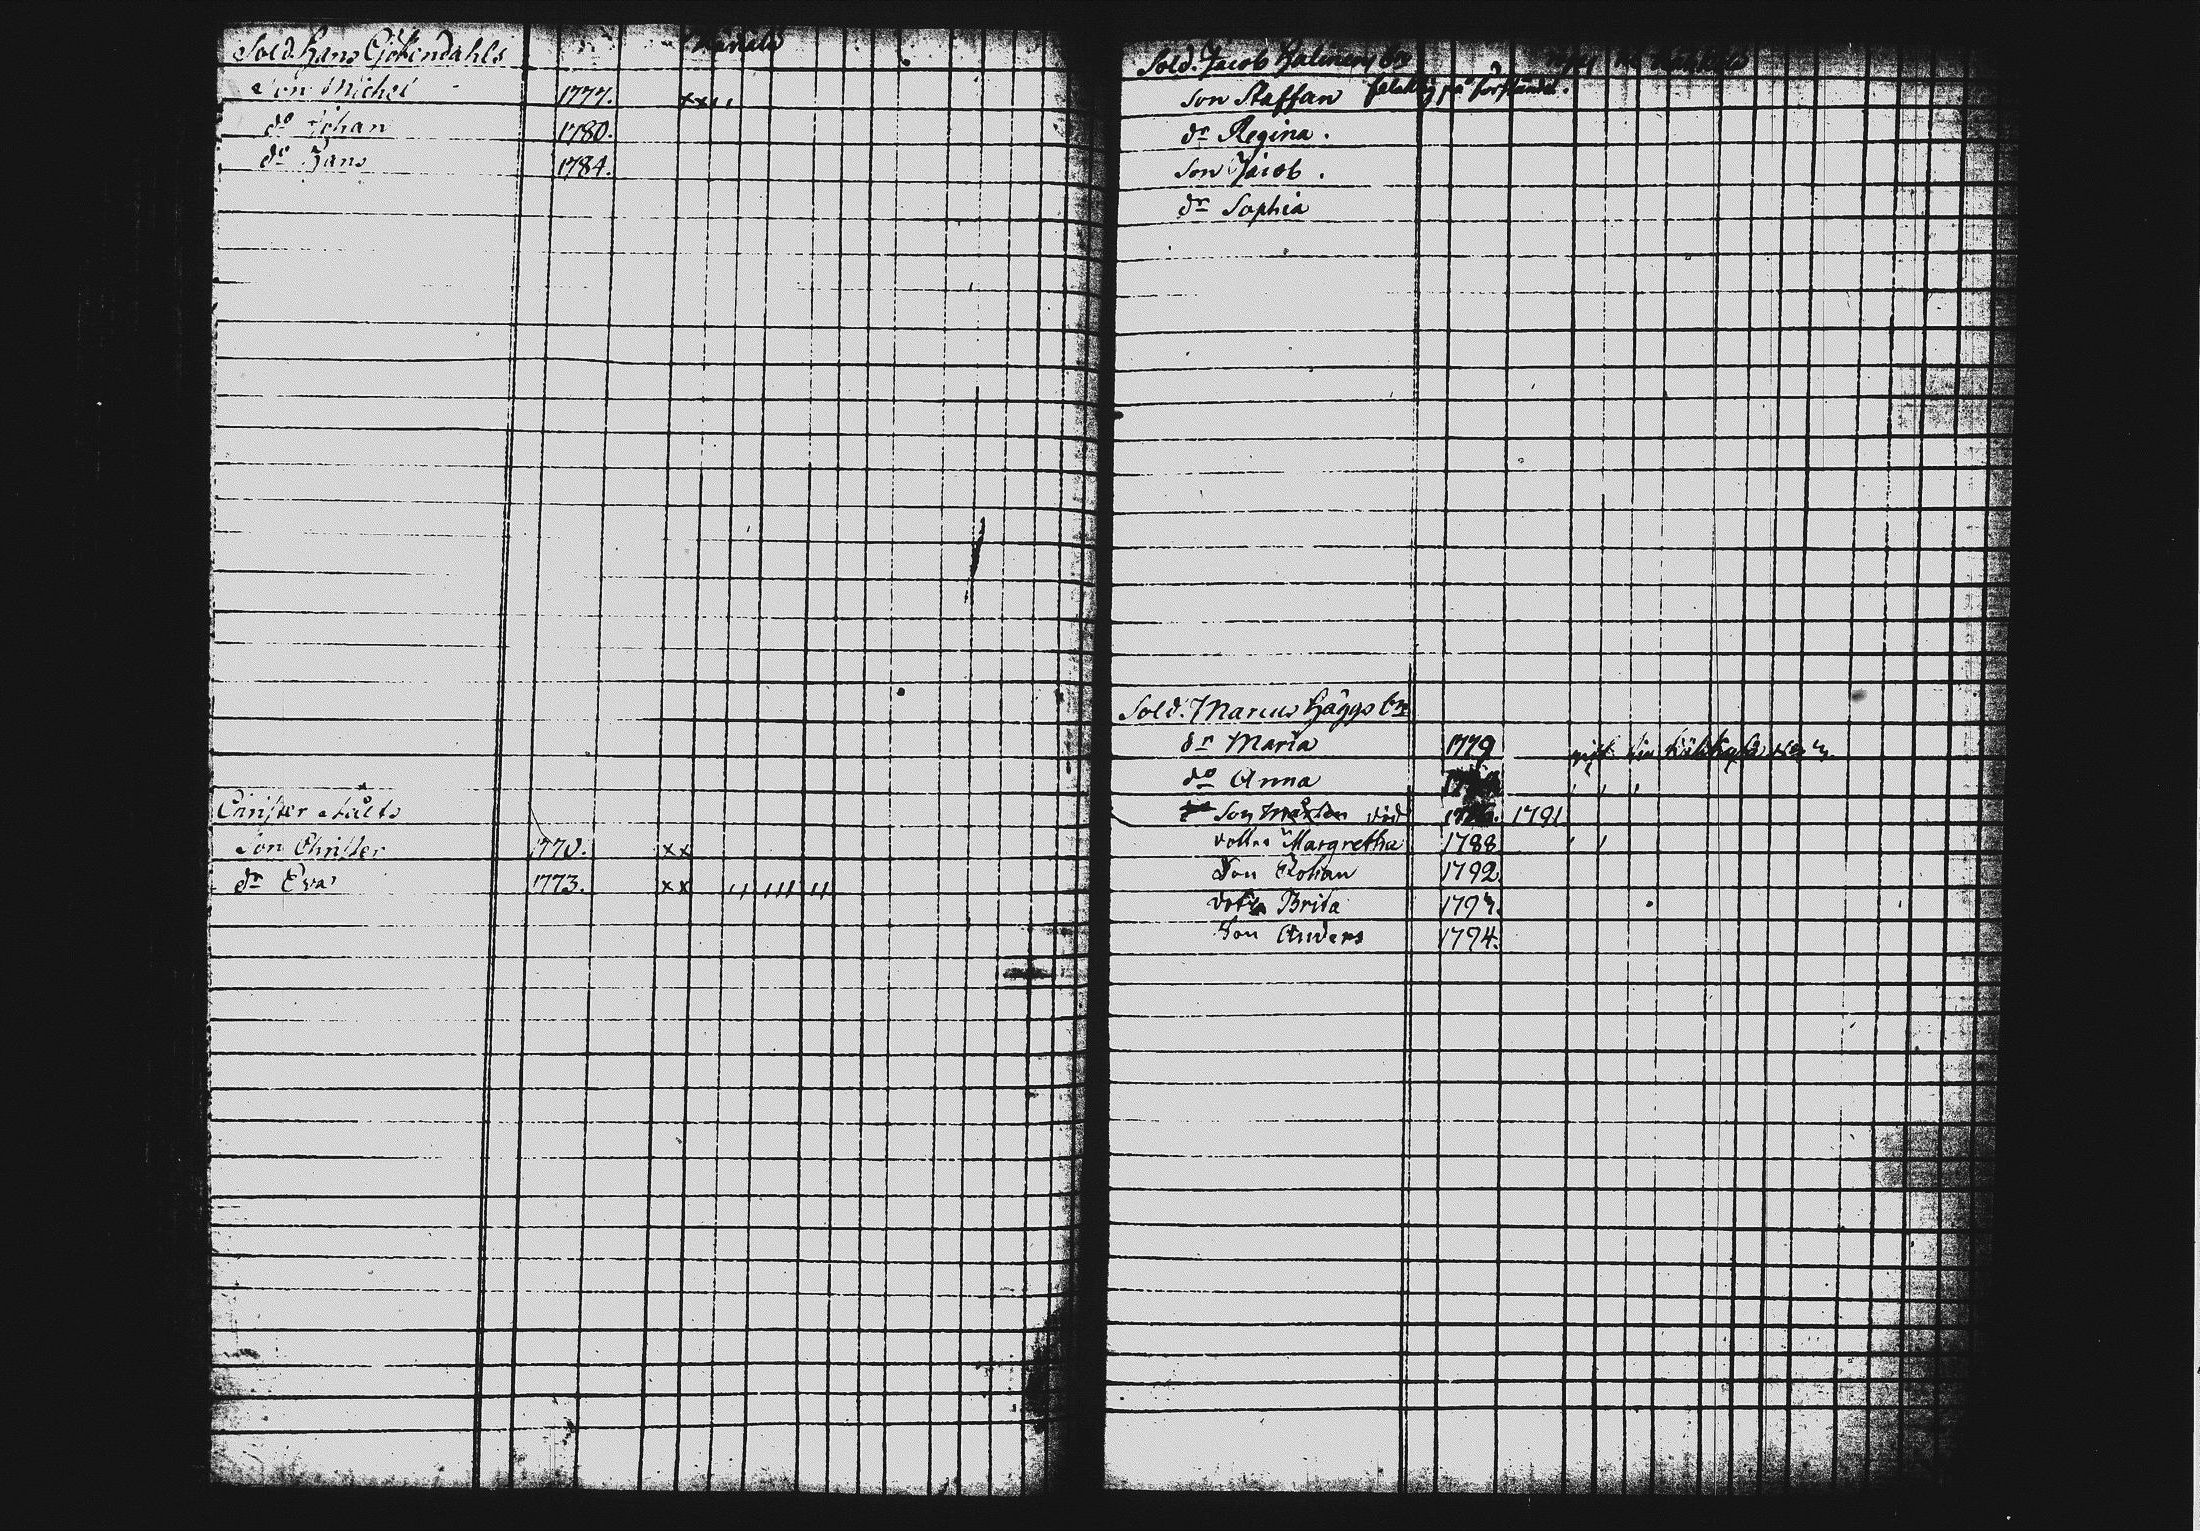 Sold. Hans Görendahls
Son Michel 1777. xx
do Johan 1780.
do Hans 1784.
Christer Ståls
Son Christer 1770. xx
dr Eva 1773. xx
Sold. Jacob
Son Staffan felaktig på förståndet.
dr Regina.
Son Jacob.
dr Sophia
Sold. Marcus Häggs bn
dr Maria 1779
do Anna
Son Mårten död 1791
Margretha 1788
Son Johan 1792
Brita
Son Anders 1794.